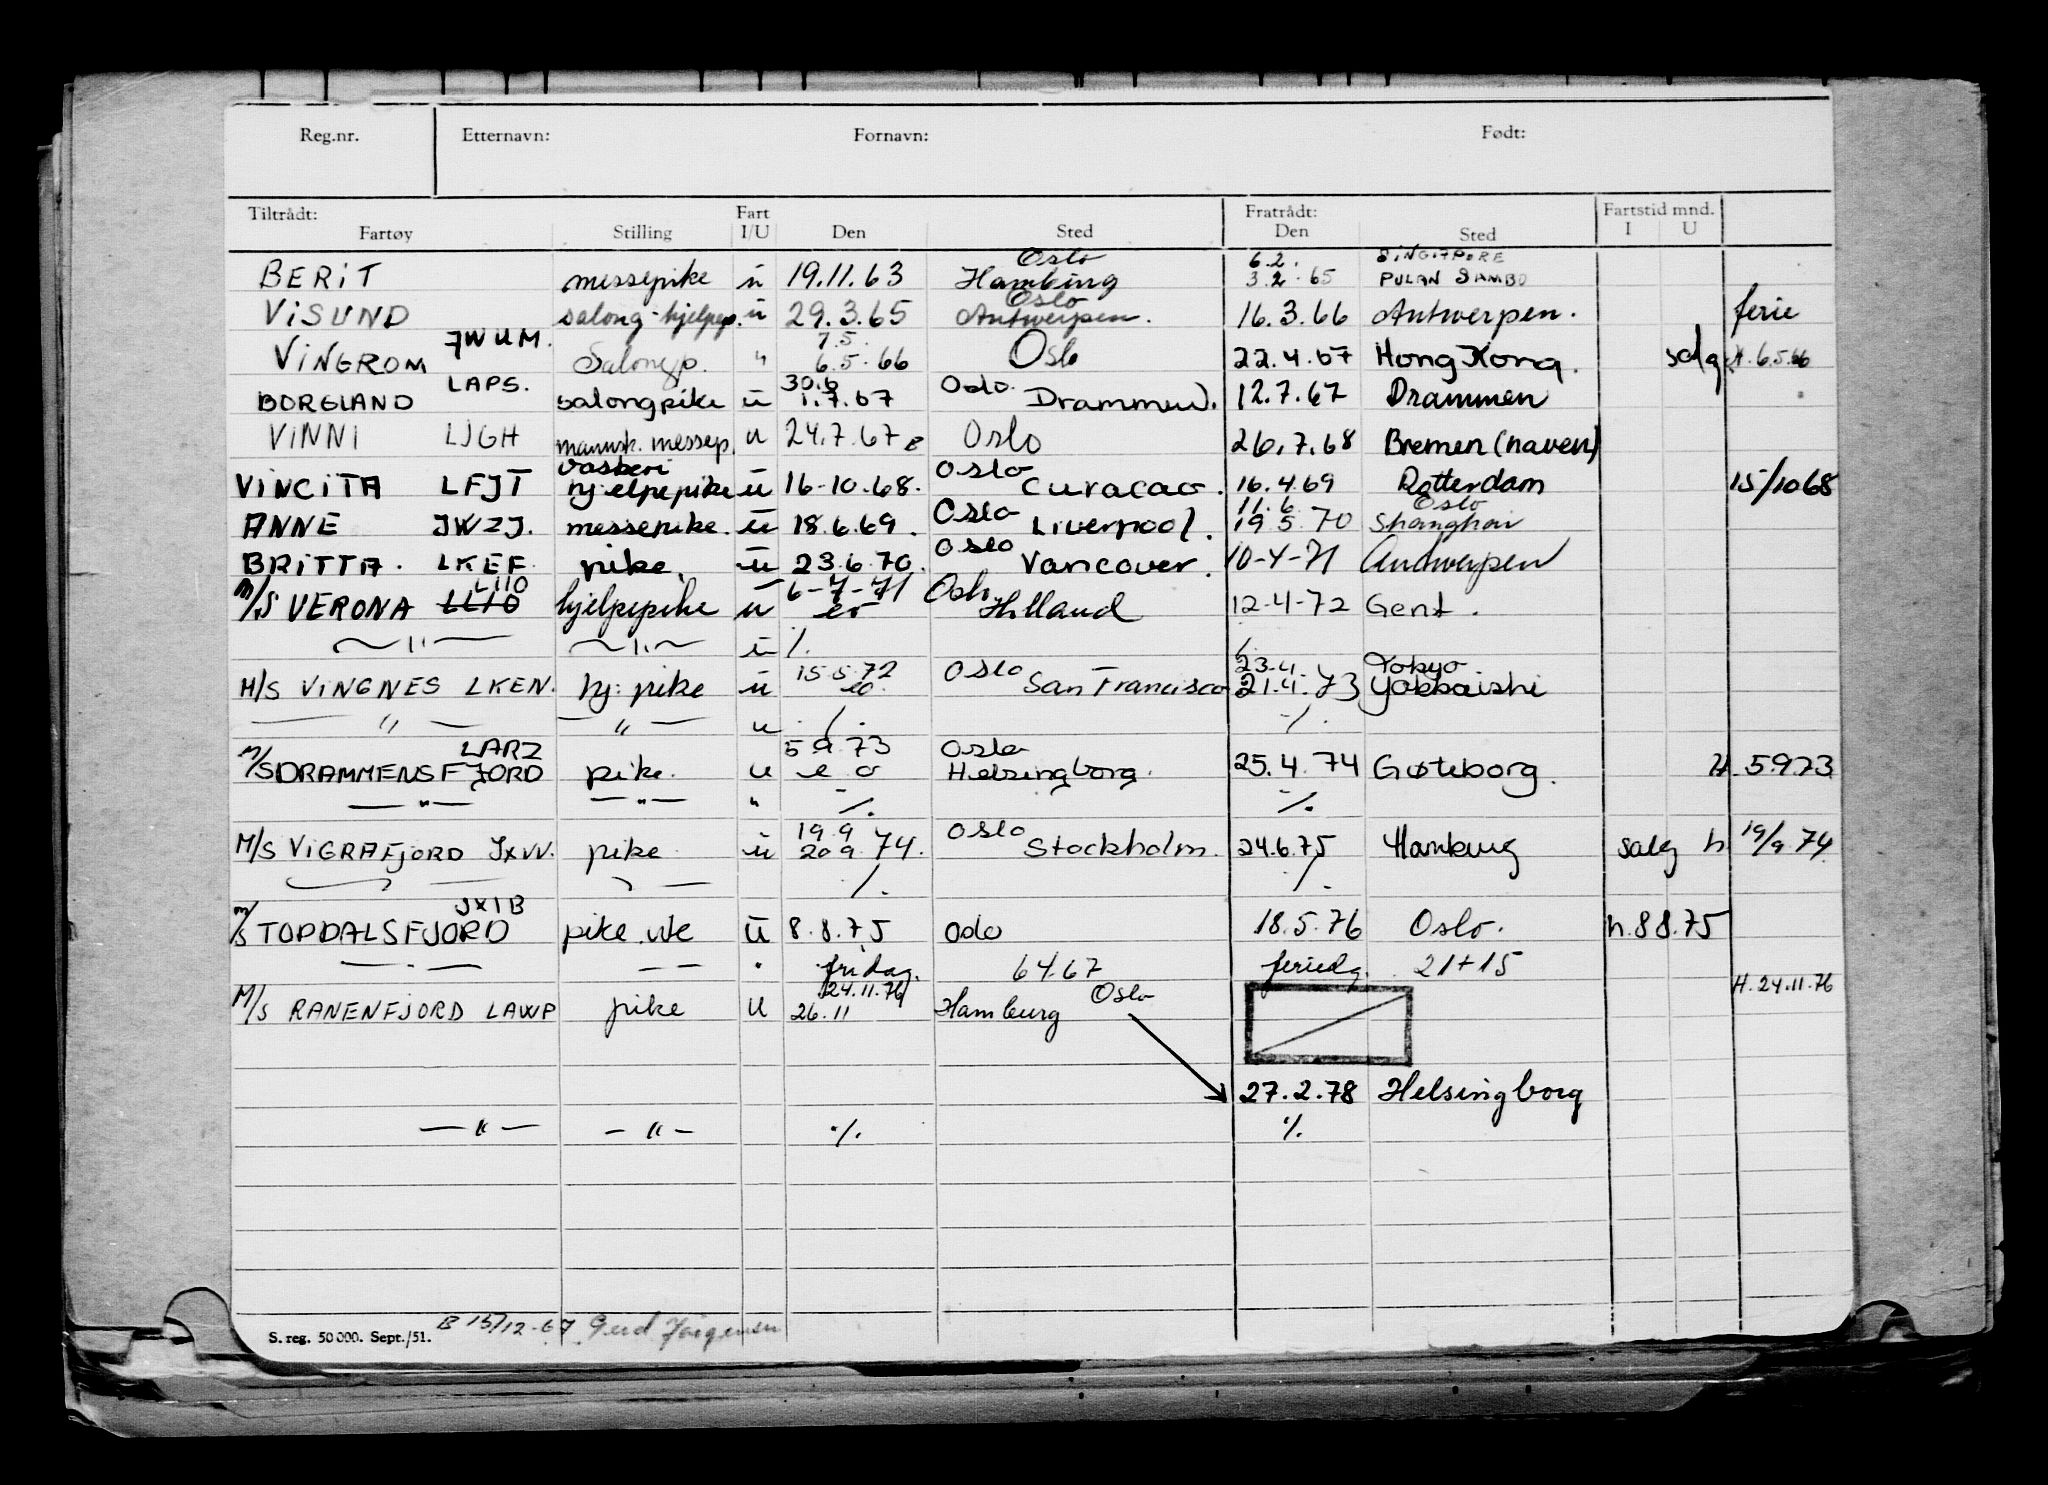 Reg.nr. Etternavn: Fornavn: Født:
Tiltrådt: Fart Fratrådt: Fartstid mnd.
Fartøy Stilling I/U Den Sted Den Sted I U
Oslo 6.2. SINGAPORE
BERIT messepike u 19.11.63 Hamburg 3.2.65 PULAN SAMBO
Oslo
VISUND salong-hjelpep. u 29.3.65 Antwerpen. 16.3.66 Antwerpen. ferie
JWUM. 7.5.
VINGROM Salongp. " 6.5.66 Oslo 22.4.67 Hong Kong. salg H. 6.5.66
LAPS. 30.6 Oslo.
BORGLAND salongpike u 1.7.67 Drammen. 12.7.67 Drammen
VINNI LJGH mannsk. messep. u 24.7.67 Oslo 26.7.68 Bremen (haven)
vaskeri Oslo
VINCITA LFJT hjelpepike u 16-10.68. Curacao. 16.4.69 Rotterdam 15/1068
Oslo 11.6. Oslo
ANNE JWZJ. messepike. u 18.6.69. Liverpool. 19.5.70 Shanghai
Oslo
BRITTA. LKEF. pike. u 23.6.70. Vancover. 10-4-71 Antwerpen
LIIO 6-7-71 Oslo
M/S VERONA hjelpepike u eo Holland 12-4-72 Gent.
— " — — " — u %. %
15.5.72 Oslo 23.4. Tokyo
M/S VINGNES LKEN. hj: pike u eo. San Francisco 21.4.73 Yokkaishi
— " — — " — u %. %.
LARZ 5 9 73 Oslo
M/S DRAMMENSFJORD pike. u e o Helsingborg. 25.4.74 Gøteborg. H. 5.9.73
— " — — " — " %. %.
19.9 Oslo
M/S VIGRAFJORD JXVV. pike u 20 9.74. Stockholm. 24.6.75 Hamburg salg h 19/9 74
%. %.
JXIB
M/S TOPDALSFJORD pike.ute u 8.8.75 Oslo 18.5.76 Oslo. h.8 8.75
— . — — — " fridag. 64.67 feriedg. 21+15
24.11.76 Oslo H. 24.11.76
M/S RANENFJORD LAWP pike u 26.11 Hamburg
27.2.78 Helsingborg
— " — — " — %. %.
S. reg. 50 000. Sept./51. B 15/12-67 Gerd Jørgensen